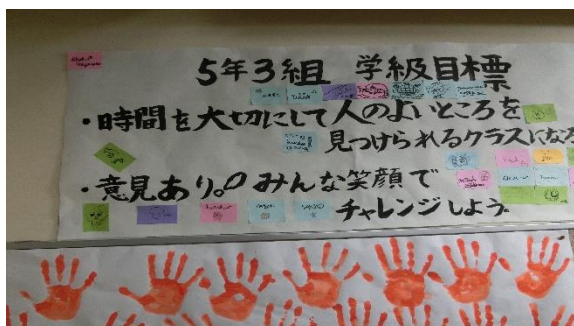 5年3組 学級目標
・時間を大切にして人のよいところを
見つけられるクラスになろ
・意見あり。みんな笑顔で
チャレンジしよう